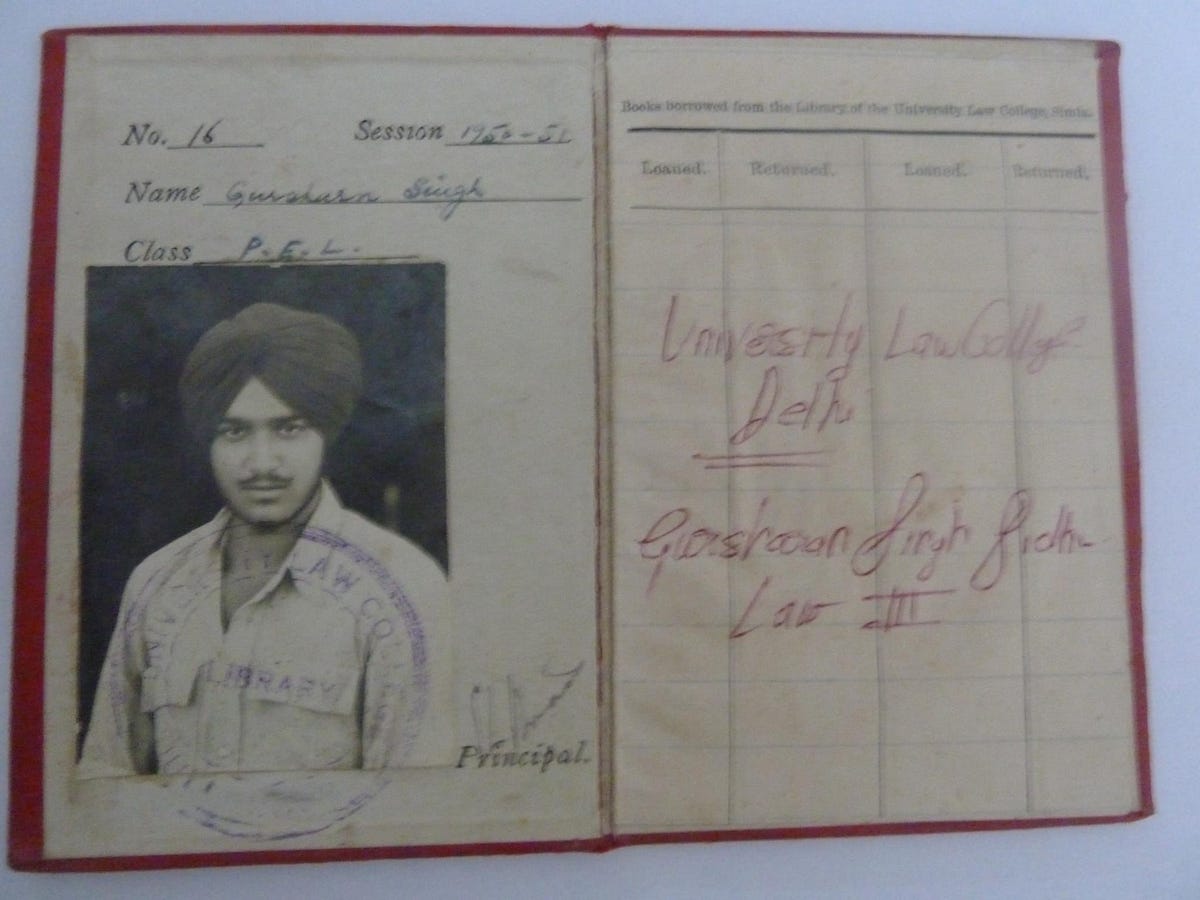 No. 16 Session 1950-51
Name Gursharn Singh
Class P.E.L.
LAW COL
LIBRARY
Principal.
Books borrowed from the Library of the University Law College, Simla.
Loaned. Returned. Loaned. Returned.
University Law College
Delhi
Gursharan Singh Sidhu
Law III